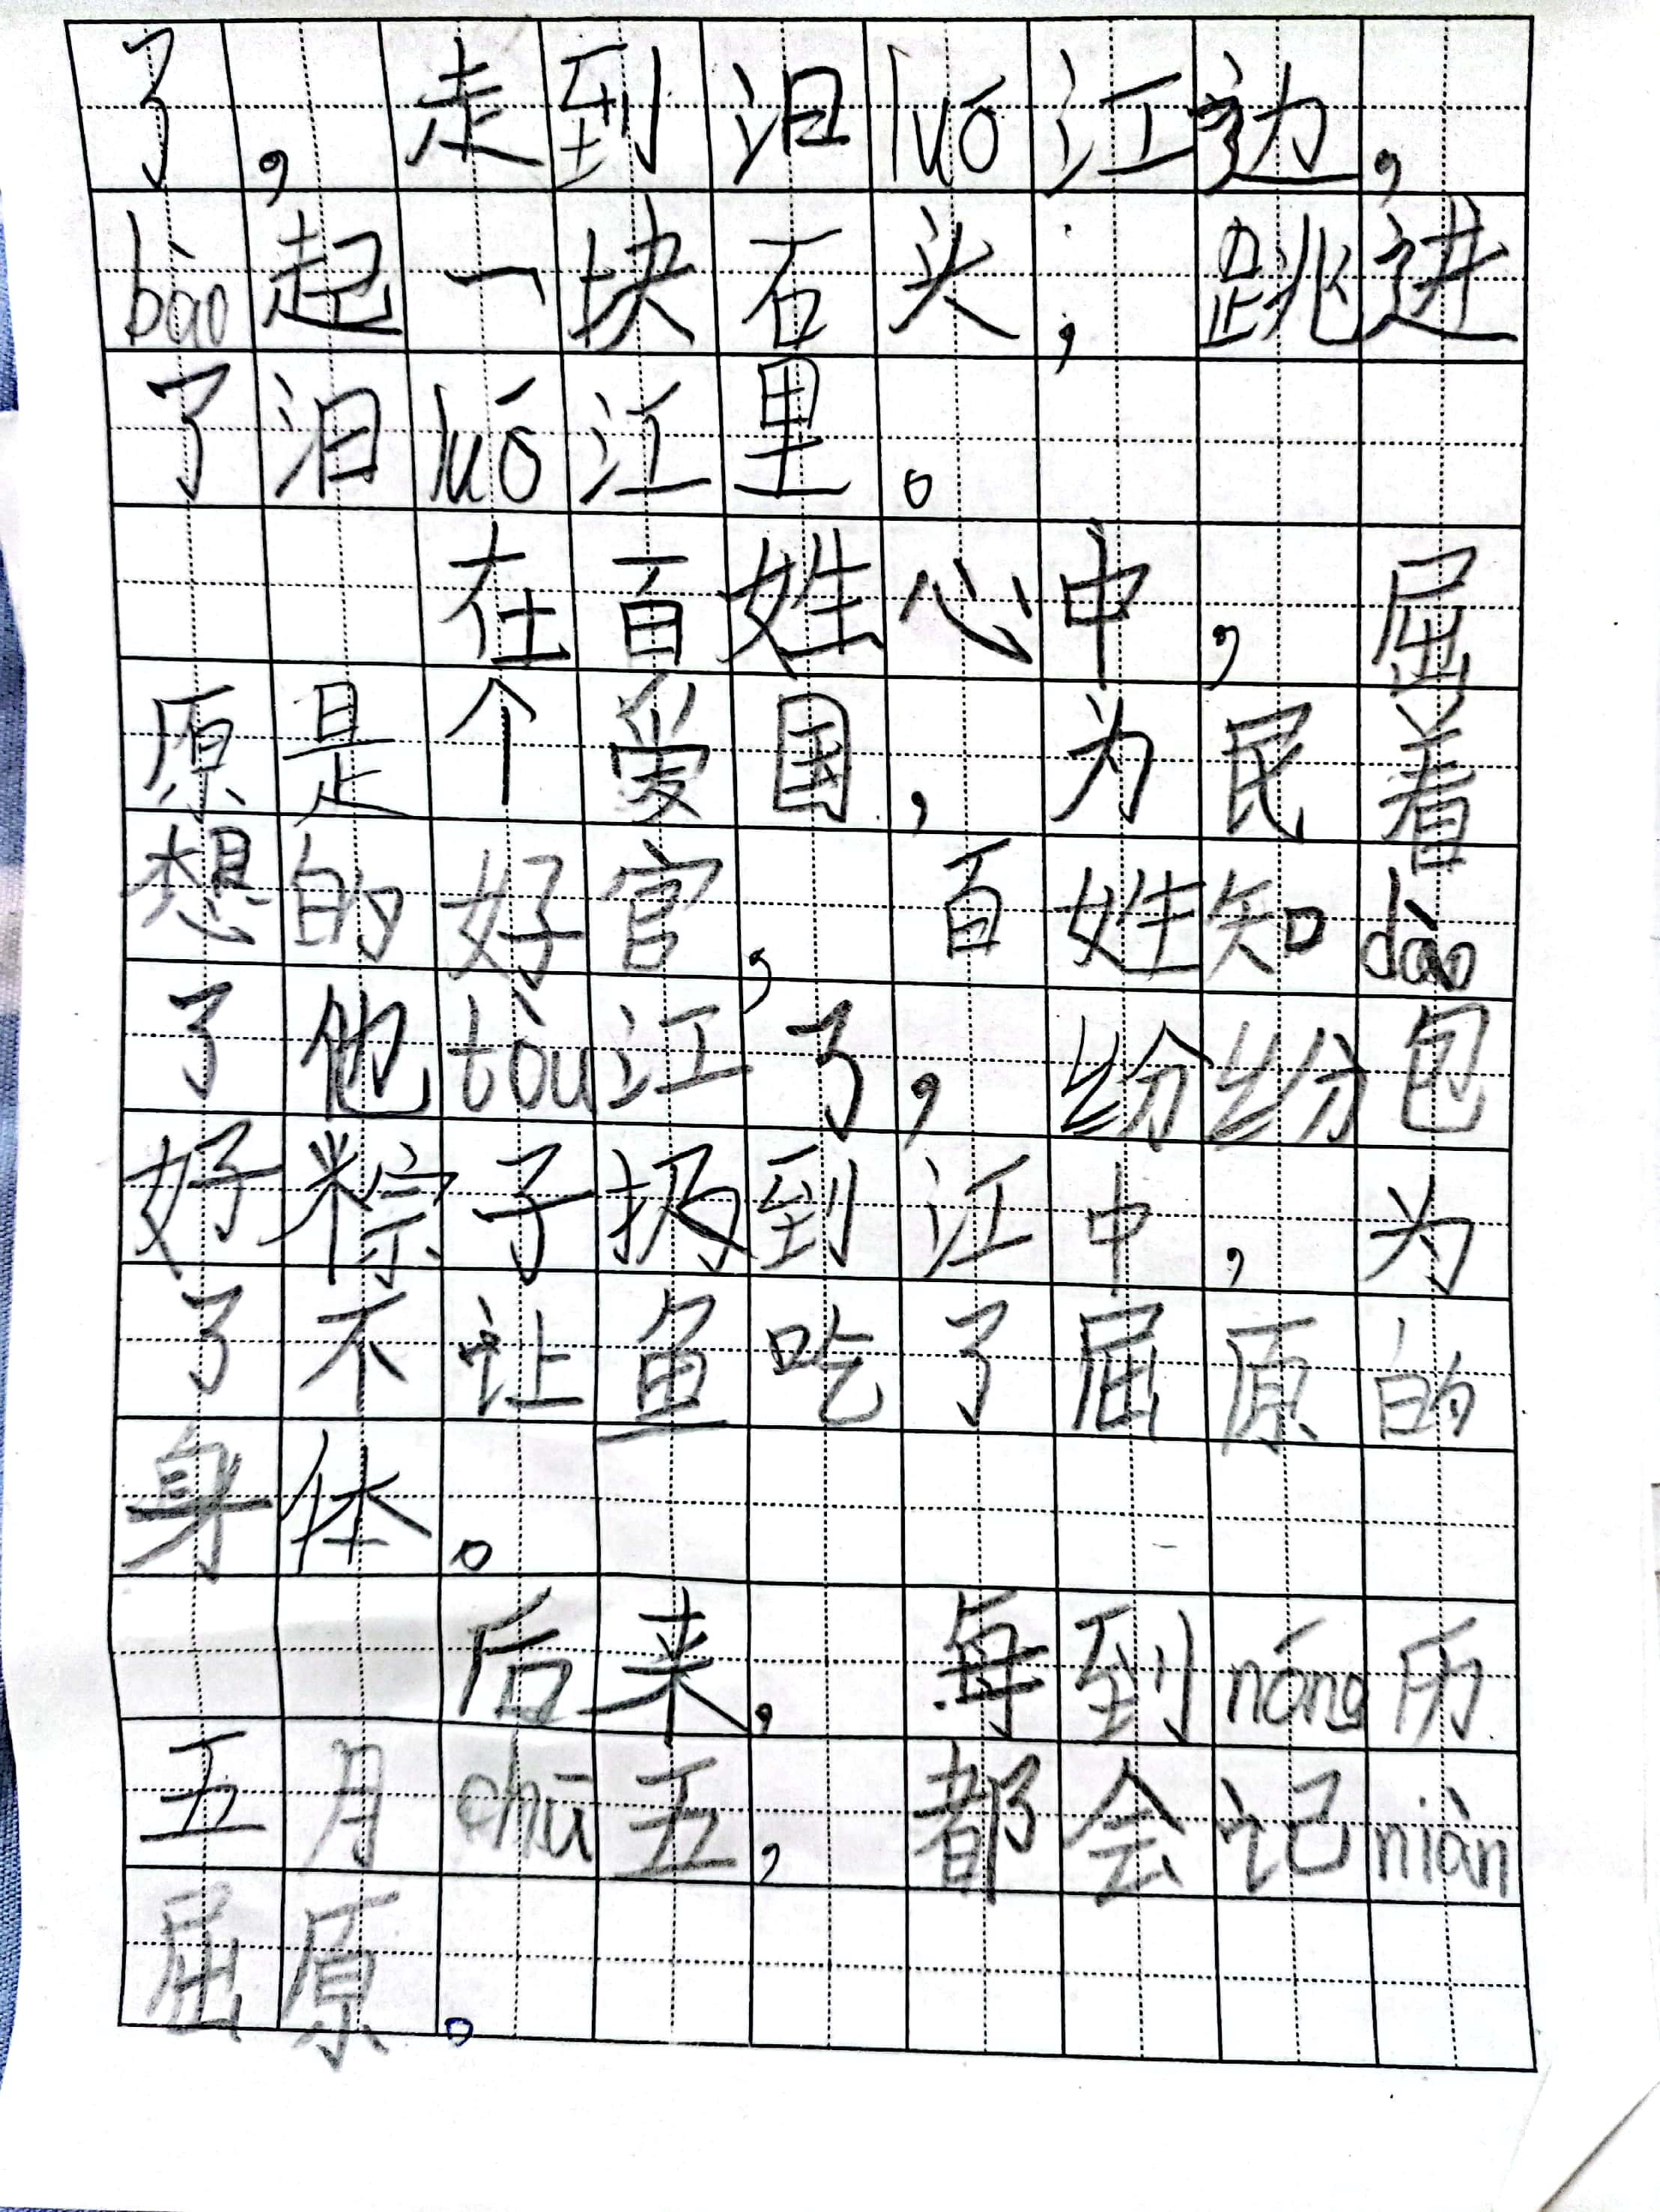 了，走到汨luó江边，
bào起一块石头，跳进
了汨luó江里。
在百姓心中，屈
原是个爱国，为民着
想的好官，百姓知dào
了他tóu江了，纷纷包
好粽子扔到江中，为
了不让鱼吃了屈原的
身体。
后来，每到nóng历
五月chū五，都会记niàn
屈原。